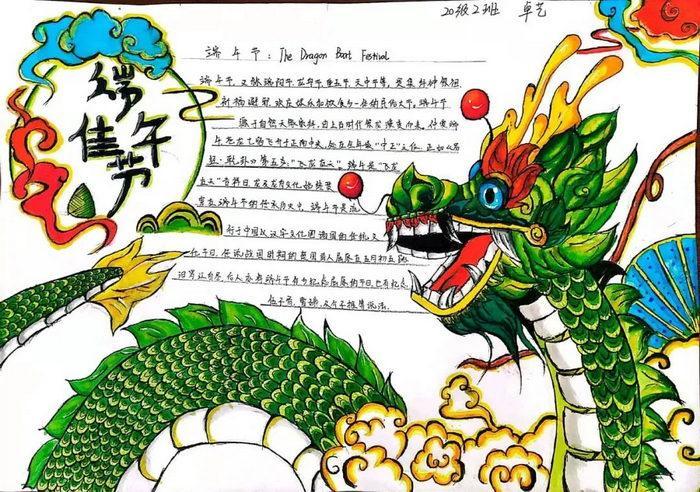 20级2班 卓艺
端午佳节
端午节：The Dragon Boat Festival
端午节，又称端阳节、龙舟节、重五节、天中节等，是集拜神祭祖、
祈福辟邪、欢庆娱乐和饮食为一体的民俗大节。端午节
源于自然天象崇拜，由上古时代祭龙演变而来。仲夏端
午，苍龙七宿飞升于正南中天，处在全年最“中正”之位，正如《易
经·乾卦》第五爻：“飞龙在天”。端午是“飞龙
在天”吉祥日，龙及龙舟文化始终贯
穿在端午节的传承历史中。端午节是流
行于中国以及汉字文化圈诸国的传统文
化节日，传说战国时期的楚国诗人屈原在五月初五跳
汨罗江自尽，后人亦将端午节作为纪念屈原的节日；也有纪念
伍子胥、曹娥及介子推等说法。